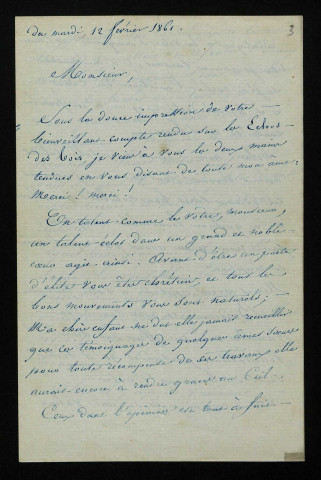 du mardi, 12 février 1861.
3
Monsieur,
Sous la douce impression de votre
bienveillant compte rendu sur les Echos
des Bois, je viens à vous les deux mains
tendues en vous disant de toute mon âme:
Merci! merci!
Un talent comme le vôtre, monsieur,
un talent éclos dans un grand et noble
cœur agit ainsi. Avant d'être un poète
d'élite vous êtes chrétien, et tous les
bons mouvements vous sont naturels;
Ma chère enfant ne dut elle jamais recueillir
que ces témoignages de quelques âmes sœurs
pour toute récompense de ses travaux elle
aurait encore à rendre grâces au Ciel.
Ceux dans l'épreuve est tout à fait